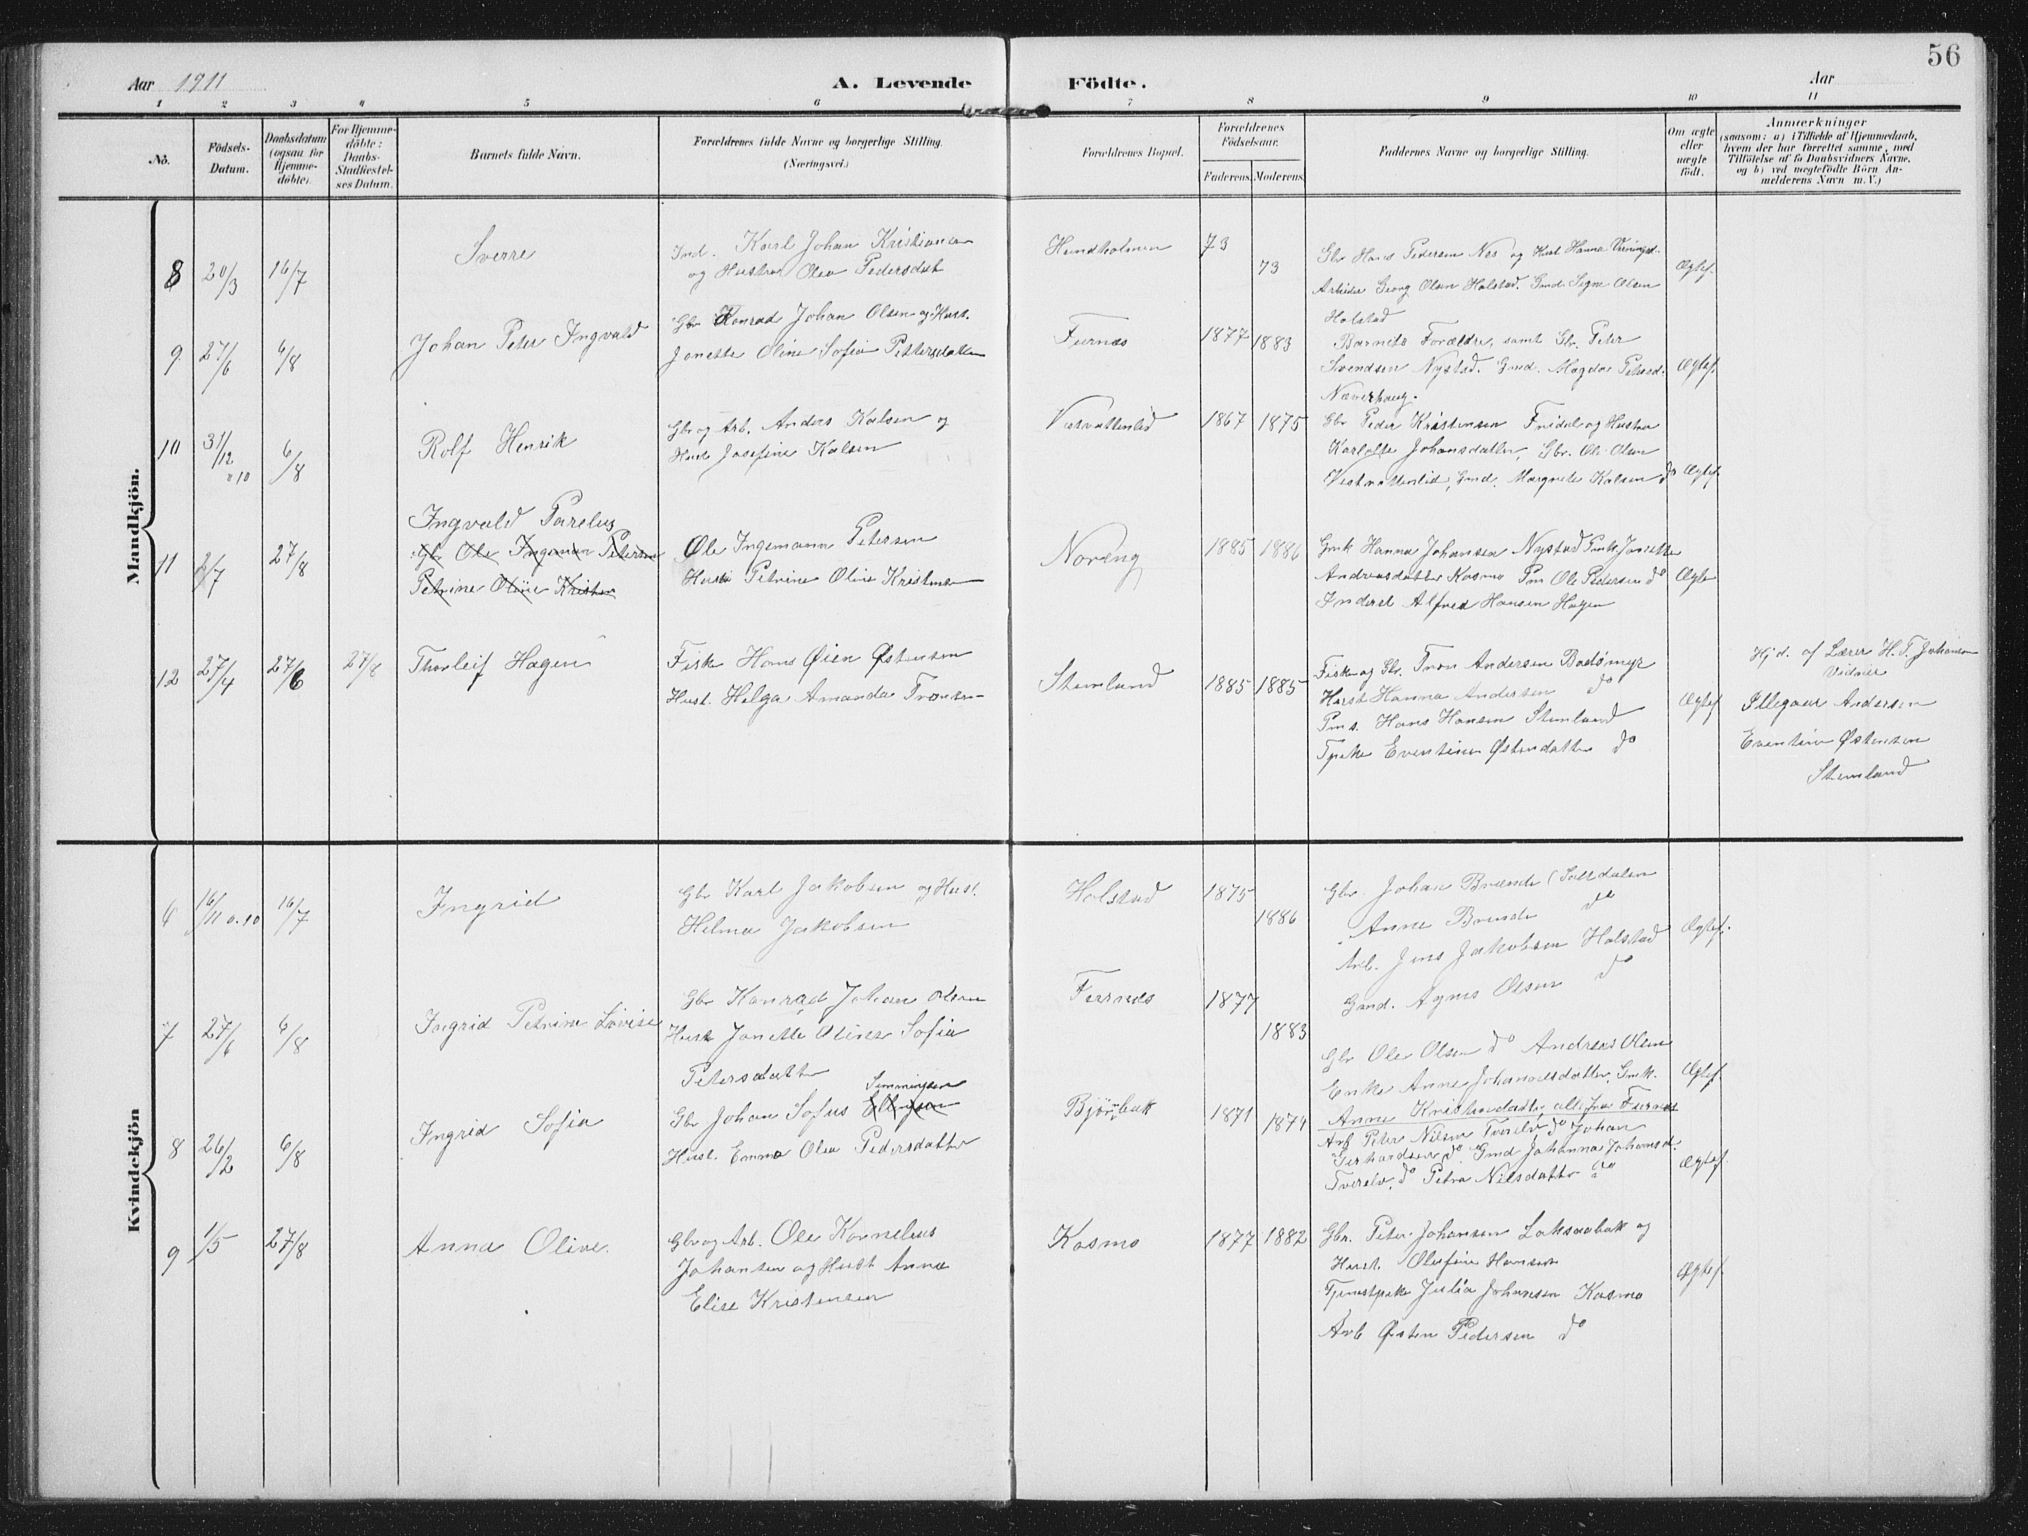 56
Aar 1911
A. Levende
Födte.
Aar
1 2 3 4 5 6 7 8 9 10 11
No.
Födsels-
Datum.
Daabsdatum
(ogsaa for
Hjemme-
döbte).
For Hjemme-
döbte:
Daabs-
Stadfæstel-
ses Datum.
Barnets fulde Navn.
Forældrenes fulde Navne og borgerlige Stilling.
(Næringsvei.)
Forældrenes Bopæl.
Forældrenes
Födselsaar.
Faderens. Moderens.
Faddernes Navne og borgerlige Stilling.
Om ægte
eller
uægte
födt.
Anmærkninger
(saasom: a) i Tilfælde af Hjemmedaab,
hvem der har forrettet samme, med
Tilföielse af to Daabsvidners Navne,
og b) ved uægtefödte Börn An-
melderens Navn m. V.)
Mandkjön.
8 20/3 16/7
Sverre
Ind. Karl Johan Kristiansen
og Hustru Olea Pedersdat
Hundholmen
73
73
Gbr Hans Pedersen Nes og Hust Hanna
Arbeider Georg Olsen Holstad. Gmd. Signe Olsen
Holstad
Ægtef.
9 27/6 6/8
Johan Peter Ingvald
Gbr Konrad Johan Olsen og Hust.
Jonette Oline Sofia Pettersdatter
Furnes
1877 1883
Barnets Forældre, samt Gbr. Peter
Svendsen Nystad. Gmd. Magda Petersd.
Næverhaug.
Ægtef.
10 31/12 o 10 6/8
Rolf Henrik
Gbr og Arb. Anders Kalsen og
Hust Josefine Kalsen
Vestvattenlid
1867 1875
Gbr Peder Kristensen Fridal og Hustru
Karlotte Johansdatter, Gbr. Ole Olsen
Vestvattenlid, Gmd. Margrete Kalsen do
Ægtef.
11 2/7 27/8
Ingvald Parelius
Gbr Ole Ingeman Petersen
Petrine Oline Kristen
Ole Ingemann Petersen
Hust. Petrine Oline Kristensen
Noreng
1885 1886
Gmk Hanna Johansen Nystad Pmk Jonette
Andreasdatter Kosmo Pm Ole Pedersen do
Inderst Alfred Hansen Hagen
Ægte
12 27/4 27/6 27/8
Thorleif Hagen
Fisk Hans Øien Østensen
Hust. Helga Amanda
Stemland
1885 1885
Fisk og Gbr. Tron Andersen Badsmyr
Hust Hanna Andersen do
Pms. Hans Hansen Stemland
Tpike Eventine Østensdatter do
Ægtef
Hjd. af Lærer H. T. Johansen
Vidner
Andersen
Eventine Østensen
Stemland
Kvindekjön
6 16/11 o. 10 16/7
Ingrid
Gbr Karl Jakobsen og Hust.
Helma Jakobsen
Holstad
1875
1886
Gbr. Johan Brænde (Saltdalen
Anne Brende do
Arb. Jens Jakobsen Holstad
Gmd. Agnes Olsen do
Ægtef.
7 27/6 6/8
Ingrid Petrine Lovise
Gbr Konrad Johan Olsen
Hust Jonette Oline Sofia
Petersdatter
Furnes
1877
1883
Gbr Ole Olsen do Andreas Olsen
Enke Anne Johannesdatter, Gmk.
Anne Kristensdatter, alle fra Furnes
Ægtef.
8 26/2 6/8
Ingrid Sofia
Simmingsen
Gbr Johan Sofus Ellingsen
Hust. Emma Olea Pedersdatter
Bjørnbak
1871 1874
Arb Peter Nilsen Tverelv do Johan
Gerhardsen do Gmd Johanna Johansd.
Tverelv, do Petra Nilsdatter do
Ægtef.
9 1/5 27/8
Anna Olive.
Gbr og Arb. Ole Kornelius
Johansen og Hust Anna
Elise Kristensen
Kosmo
1877 1882
Gbr. Peter Johansen Laksaabak og
Hust. Olufine Hansen
Tjenestpike Julia Johansen Kosmo
Arb Østen Pedersen do
Ægtef.